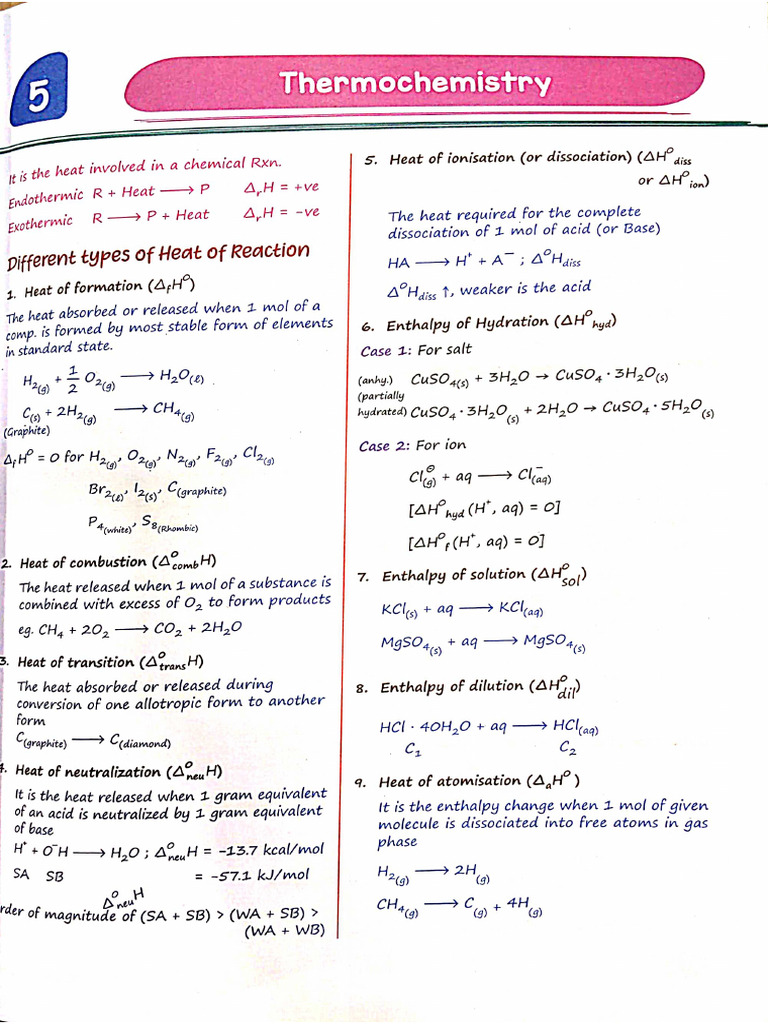 5
Thermochemistry
It is the heat involved in a chemical Rxn.
Endothermic R + Heat ⟶ P ΔᵣH = +ve
Exothermic R ⟶ P + Heat ΔᵣH = –ve
Different types of Heat of Reaction
1. Heat of formation (Δ_fH°)
The heat absorbed or released when 1 mol of a
comp. is formed by most stable form of elements
in standard state.
H₂(g) + 1/2 O₂(g) ⟶ H₂O(ℓ)
C(s) + 2H₂(g) ⟶ CH₄(g)
(Graphite)
Δ_fH° = 0 for H₂(g), O₂(g), N₂(g), F₂(g), Cl₂(g)
Br₂(ℓ), I₂(s), C(graphite)
P₄(white), S₈(Rhombic)
2. Heat of combustion (Δ°_combH)
The heat released when 1 mol of a substance is
combined with excess of O₂ to form products
eg. CH₄ + 2O₂ ⟶ CO₂ + 2H₂O
3. Heat of transition (Δ°_transH)
The heat absorbed or released during
conversion of one allotropic form to another
form
C(graphite) ⟶ C(diamond)
4. Heat of neutralization (Δ°_neuH)
It is the heat released when 1 gram equivalent
of an acid is neutralized by 1 gram equivalent
of base
H⁺ + O⁻H ⟶ H₂O ; Δ°_neuH = –13.7 kcal/mol
SA SB = –57.1 kJ/mol
Δ°_neuH
rder of magnitude of (SA + SB) > (WA + SB) >
(WA + WB)
5. Heat of ionisation (or dissociation) (ΔH°_diss
or ΔH°_ion)
The heat required for the complete
dissociation of 1 mol of acid (or Base)
HA ⟶ H⁺ + A⁻ ; Δ°H_diss
Δ°H_diss ↑, weaker is the acid
6. Enthalpy of Hydration (ΔH°_hyd)
Case 1: For salt
(anhy.) CuSO₄(s) + 3H₂O → CuSO₄ · 3H₂O(s)
(partially
hydrated) CuSO₄ · 3H₂O(s) + 2H₂O → CuSO₄ · 5H₂O(s)
Case 2: For ion
Cl⊖(g) + aq ⟶ Cl⁻(aq)
[ΔH°_hyd (H⁺, aq) = 0]
[ΔH°_f (H⁺, aq) = 0]
7. Enthalpy of solution (ΔH°_sol)
KCl(s) + aq ⟶ KCl(aq)
MgSO₄(s) + aq ⟶ MgSO₄(s)
8. Enthalpy of dilution (ΔH°_dil)
HCl · 40H₂O + aq ⟶ HCl(aq)
C₁ C₂
9. Heat of atomisation (ΔₐH°)
It is the enthalpy change when 1 mol of given
molecule is dissociated into free atoms in gas
phase
H₂(g) ⟶ 2H(g)
CH₄(g) ⟶ C(g) + 4H(g)